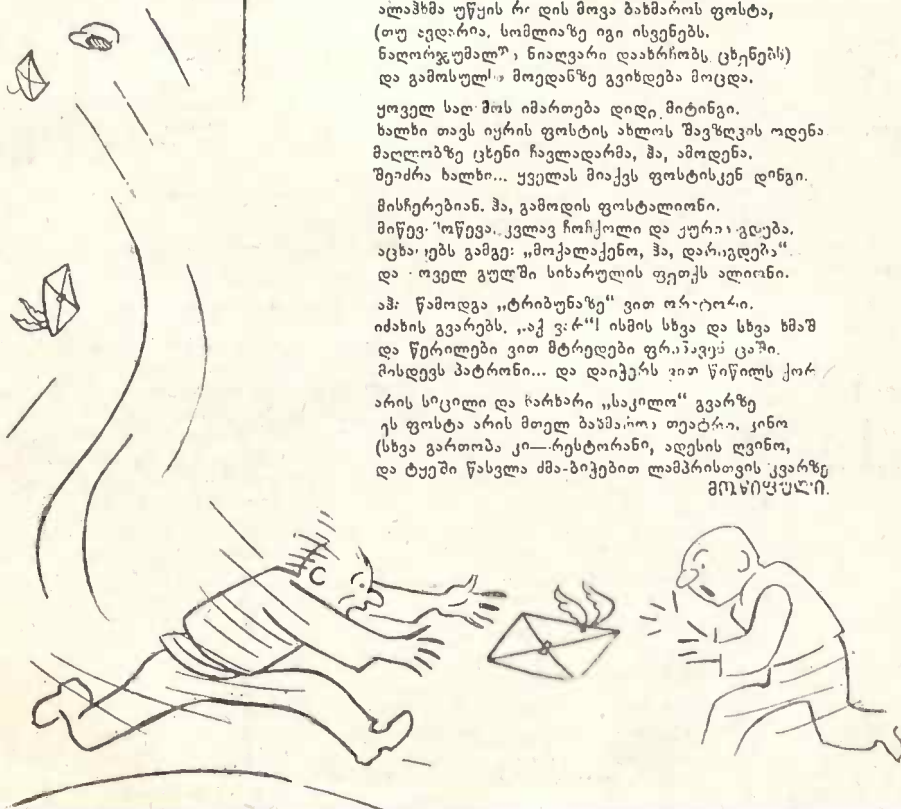 ალაჰმა უწყის რო დის მოვა ბახმაროს ფოსტა,
(თუ ავდარია, სომლიაზე იგი ისვენებს.
ნიაღვარი დაახრჩობს ცხენებს)
და მოედანზე გვიხდება მოცდა.
ყოველ საღამოს იმართება დიდი მიტინგი.
ხალხი თავს იყრის ფოსტის ახლოს შავზღვის ოდენა
მაღლობზე ცხენი ჩავლადარმა, ჰა, ამოდენა.
შეიძრა ხალხი... ყველას მიაქვს ფოსტისკენ დინგი.
მისჩერებიან. ჰა, გამოდის ფოსტალიონი.
კვლავ ჩოჩქოლი და
გამგე: „მოქალაქენო, ჰა, დარიგდება“
და ყოველ გულში სიხარულის ფეთქს ალიონი.
აჰა წამოდგა „ტრიბუნაზე“ ვით ორატორი.
იძახის გვარებს. „აქ ვარ“! ისმის სხვა და სხვა ხმაშ
და წერილები ვით მტრედები ცაში.
მისდევს პატრონი... და დაიჭერს ვით წიწილს ქორ
არის სიცილი და ხარხარი „საკილო“ გვარზე
ეს ფოსტა არის მთელ ბახმაროს თეატრი, კინო
(სხვა გართობა კი—რესტორანი, ადესის ღვინო,
და ტყეში წასვლა ძმა-ბიჭებით ლამპრისთვის კვარზე
მოხიფული.